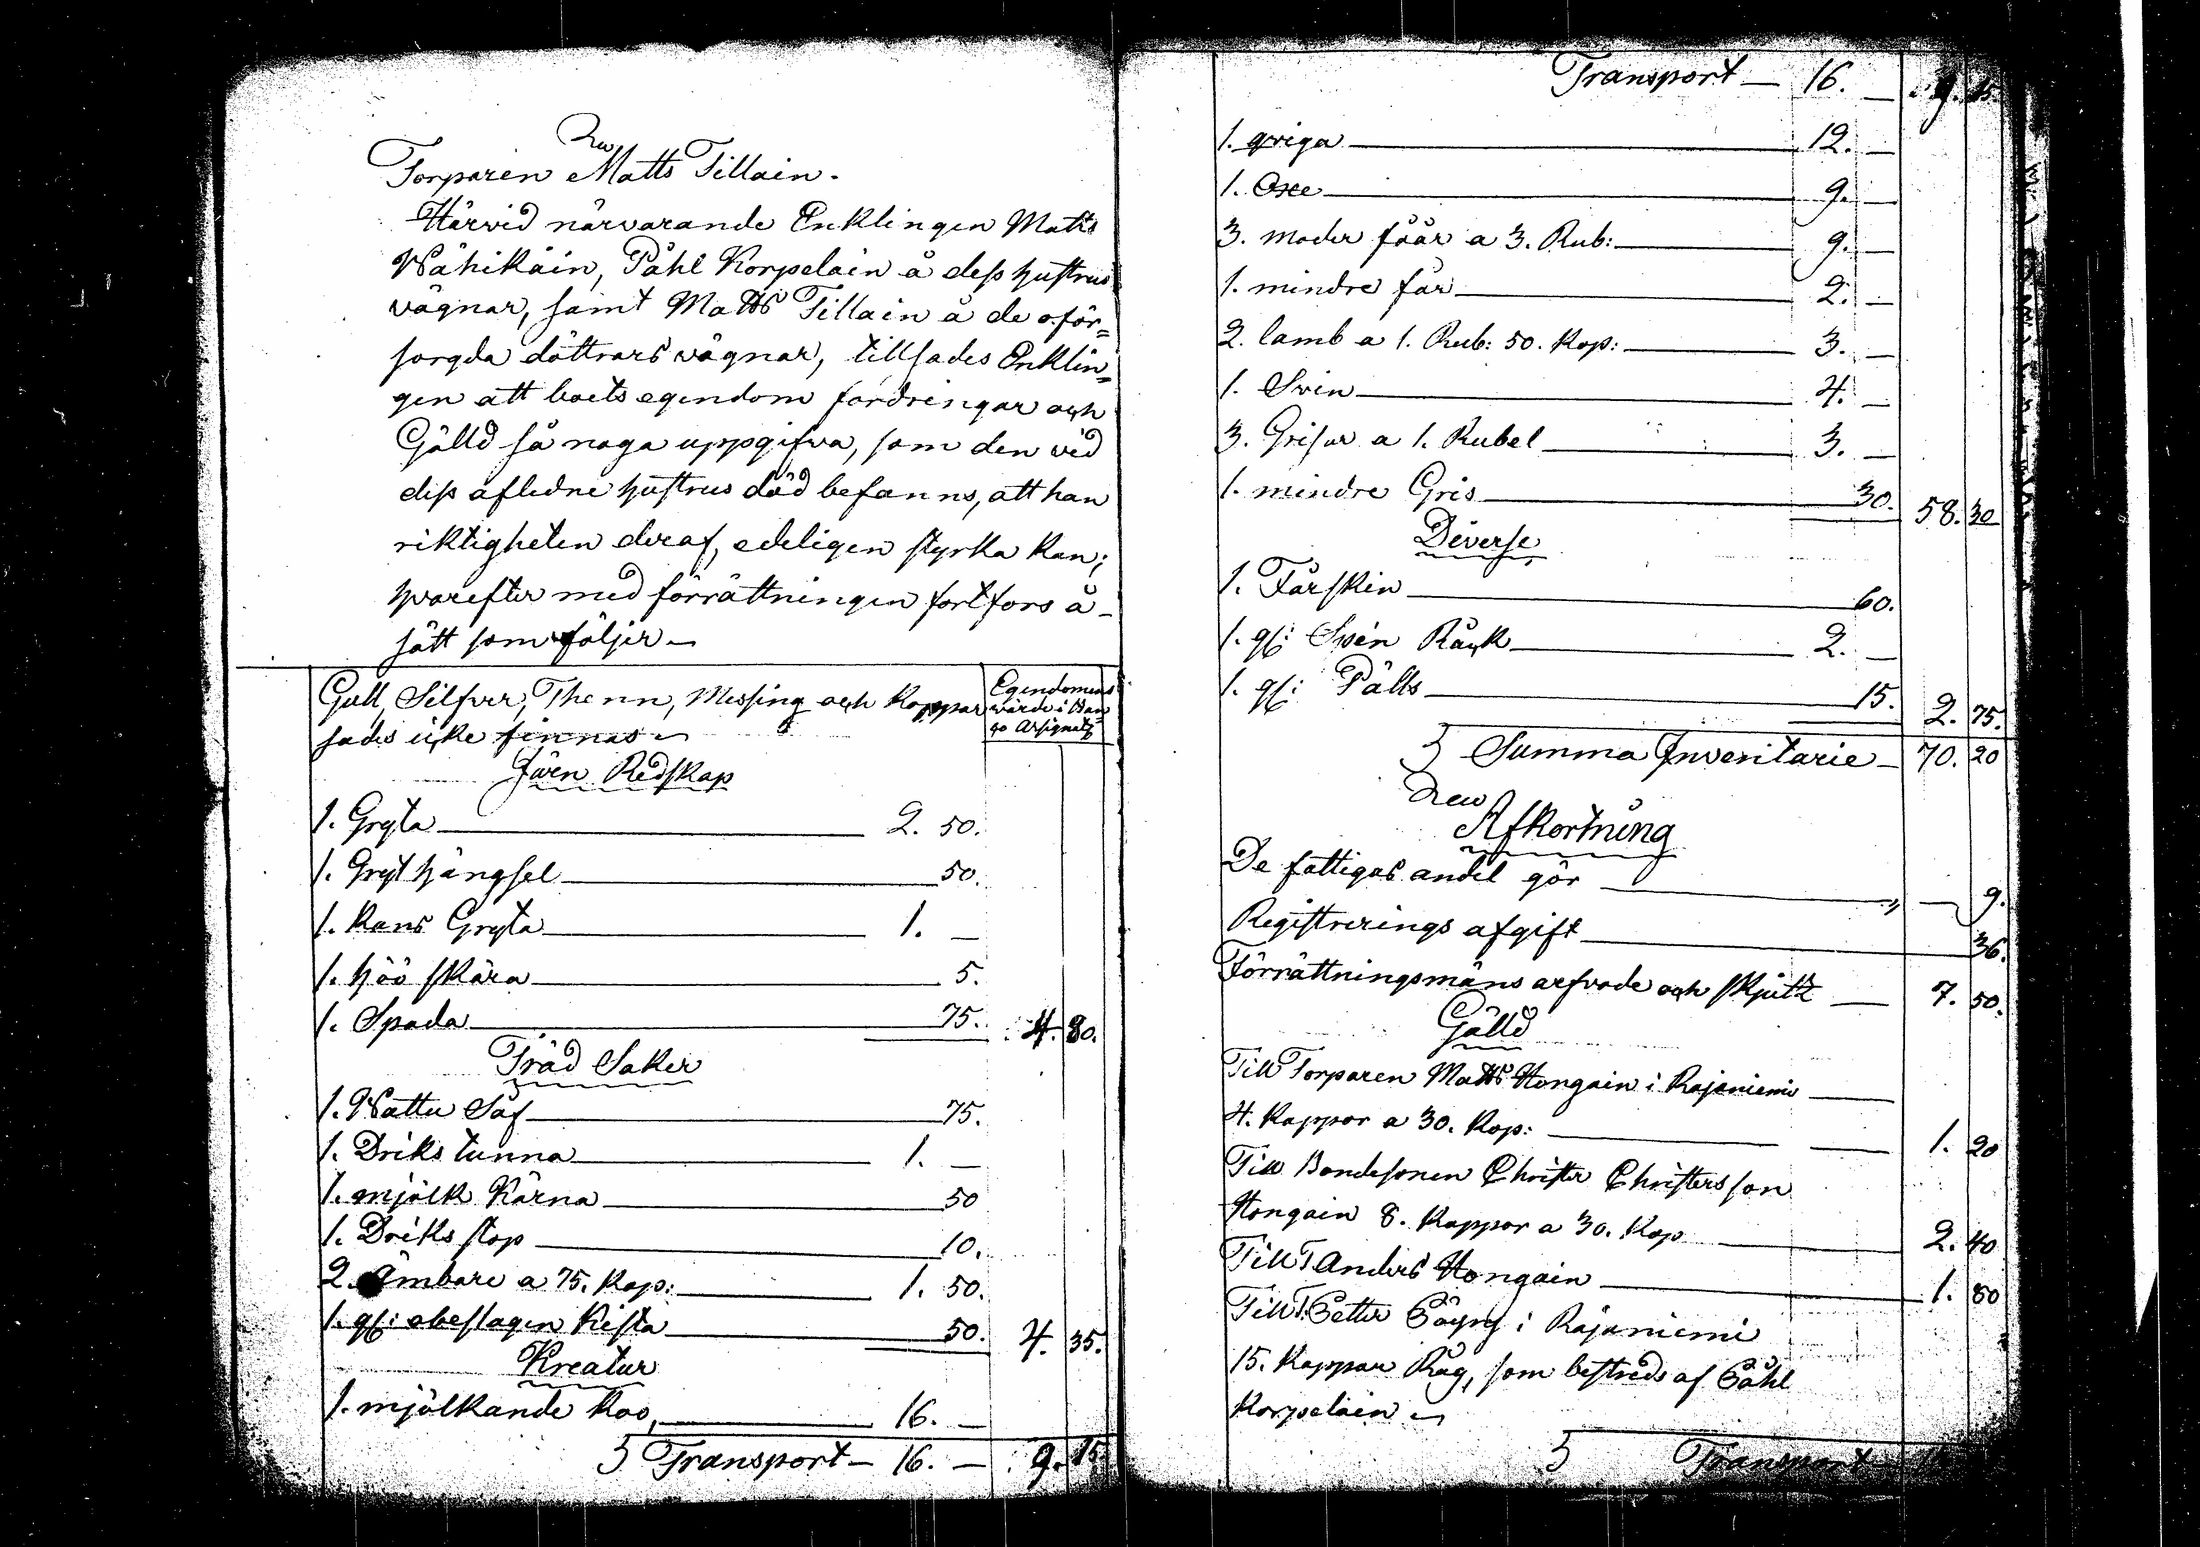 Torparen Matts Tillain.
Härvid närvarande Enklingen Matts
Wähikäin, Påhl Korpelain å dess hustrus
vägnar, samt Matts Tillain å de oför-
sorgda döttrars vägnar, tillsades Enklin-
gen att boets egendom fordringar och
Gälld så noga uppgifva, som den vid
dess aflidne hustrus död befanns, att han
riktigheten deraf, edeligen styrka kan;
hvarefter med förrättningen fortfors å
sätt som följer
Gull, Silfver, Thenn, Messing och Koppar
sades icke finnas
Egendomens
värde i Ban
co Assignats
Järn Redskap
1. Gryta 2. 50.
1. Gryt hängsel 50.
1. Kans Gryta 1. —
1. höö skära 5.
1. Spada 75. 4. 80.
Träd Saker
1. Wattu Såf 75.
1. Driks tunna 1. —
1. mjölk Kärna 50
1. Driks stop 10.
2. Ämbare a 75. Kop: 1. 50.
1. gl: obeslagen Kista 50. 4. 35.
Kreatur
1. mjölkande Koo, 16. —
Transport — 16. — 9. 15.
Transport — 16. — 9. 15.
1. qviga 12. —
1. Oxe 9. —
3. moder fåår a 3. Rub: 9. —
1. mindre får 2. —
2. lamb a 1. Rub: 50. Kop: 3. —
1. Svin 4. —
3. Grisar a 1. Rubel 3. —
1. mindre Gris 30. 58. 30
Diverse
1. Fårskin 60.
1. gl: Råck 2. —
1. gl: Pälts 15. 2. 75.
Summa Inventarie 70. 20
Afkortning
De fattigas andel gör — 9.
Registrerings afgift 36.
Förrättningsmäns arfvode och skjuts 7. 50.
Gälld
Till Torparen Matts Hongain i Rajaniemi
4. Kappor a 30. Kop: 1. 20
Till Bondesonen Christer Christersson
Hongain 8. Kappor a 30. Kop 2. 40
Till T Anders Hongain 1. 80
Till T. Petter i Rajaniemi
15. Kappar Råg, som bestreds af Påhl
Korpelain
Transport